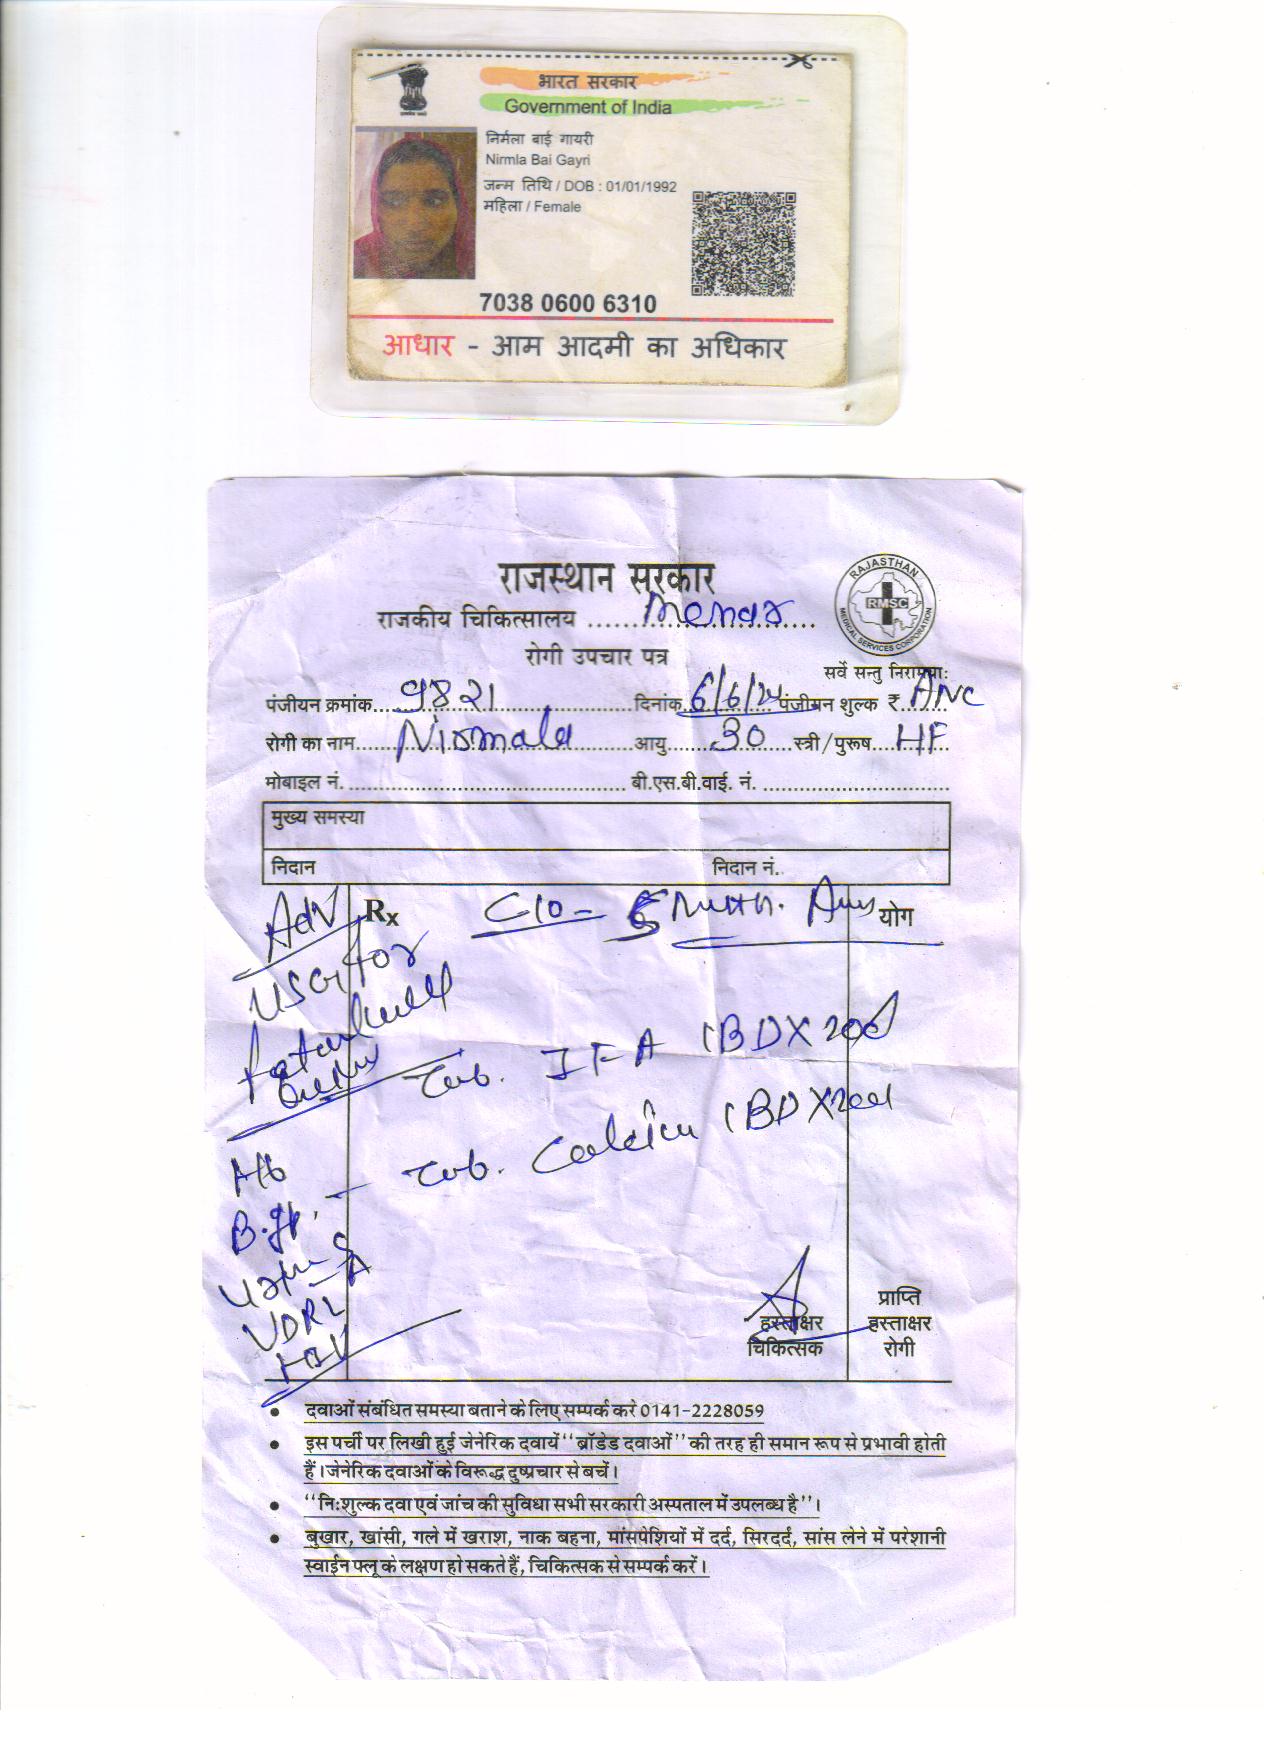 भारत सरकार
Government of India
निर्मला बाई गायरी
Nirmla Bai Gayri
जन्म तिथि / DOB : 01/01/1992
महिला / Female
7038 0600 6310
आधार - आम आदमी का अधिकार
राजस्थान सरकार
राजकीय चिकित्सालय ..... Menar
RAJASTHAN
RMSC
MEDICAL SERVICES CORPORATION
रोगी उपचार पत्र
सर्वे सन्तु निरामया:
पंजीयन क्रमांक.... 9821 दिनांक. 6/6/24 पंजीयन शुल्क ₹ ANC
रोगी का नाम.... Nirmala आयु.... 30 स्त्री/पुरूष.... HF
मोबाइल नं. .... बी.एस.बी.वाई. नं. ....
मुख्य समस्या
निदान निदान नं.
Adv Rx C/O - योग
USG for
Tab. IFA 1BDX200
Hb Tab. Calcium 1BDX200
B.gp.
VDRL
HIV
प्राप्ति
हस्ताक्षर हस्ताक्षर
चिकित्सक रोगी
• दवाओं संबंधित समस्या बताने के लिए सम्पर्क करे 0141-2228059
• इस पर्ची पर लिखी हुई जेनेरिक दवायें "ब्रॉडेड दवाओं" की तरह ही समान रूप से प्रभावी होती
हैं। जेनेरिक दवाओं के विरूद्ध दुष्प्रचार से बचें।
• "नि:शुल्क दवा एवं जांच की सुविधा सभी सरकारी अस्पताल में उपलब्ध है"।
• बुखार, खांसी, गले में खराश, नाक बहना, मांसपेशियों में दर्द, सिरदर्द, सांस लेने में परेशानी
स्वाईन फ्लू के लक्षण हो सकते हैं, चिकित्सक से सम्पर्क करें।